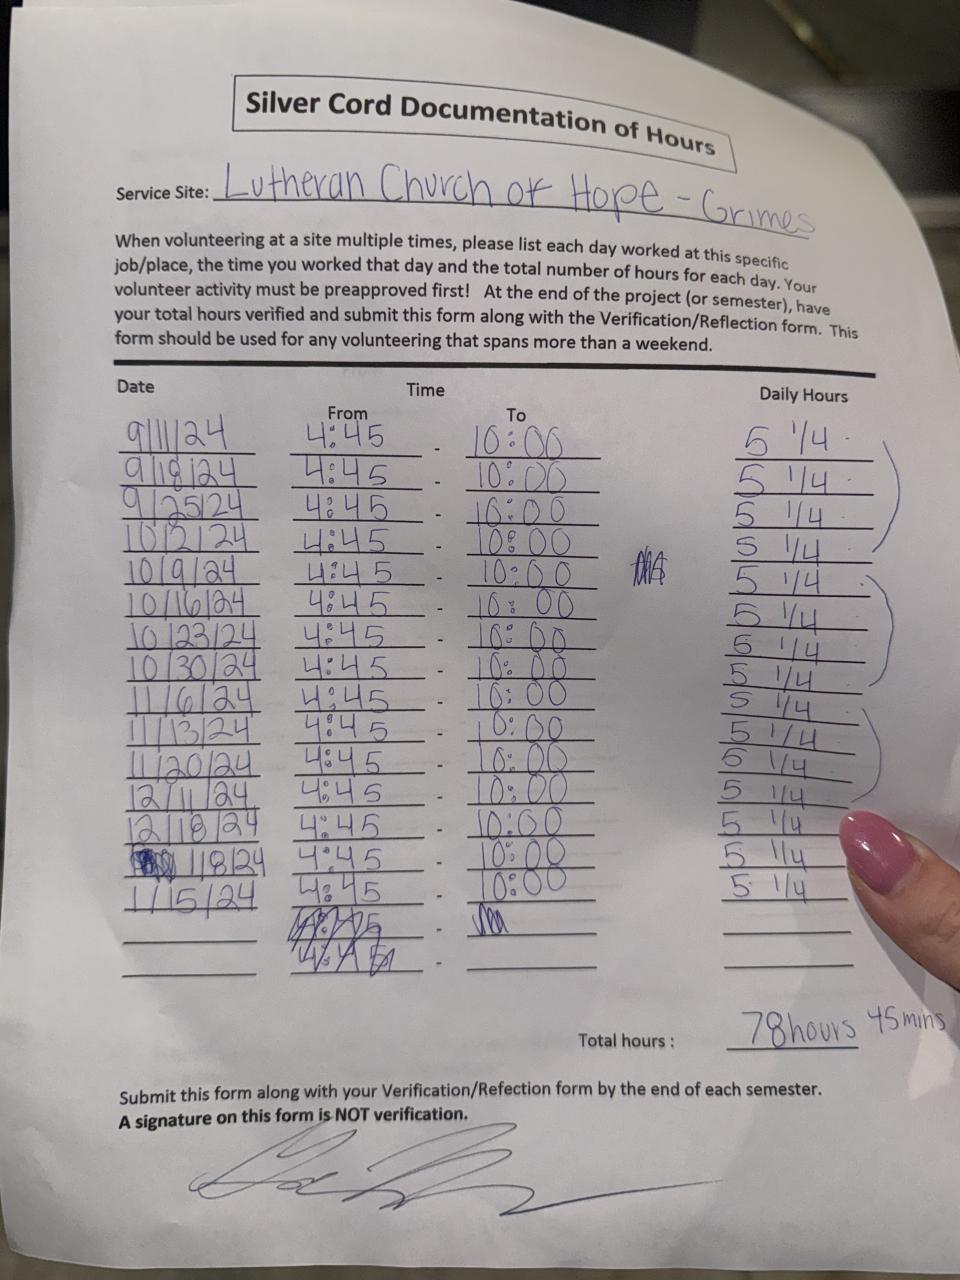 Silver Cord Documentation of Hours
Service Site: Lutheran Church of Hope - Grimes
When volunteering at a site multiple times, please list each day worked at this specific
job/place, the time you worked that day and the total number of hours for each day. Your
volunteer activity must be preapproved first! At the end of the project (or semester), have
your total hours verified and submit this form along with the Verification/Reflection form. This
form should be used for any volunteering that spans more than a weekend.
Date Time Daily Hours
From To
9/11/24 4:45 - 10:00 5 1/4
9/18/24 4:45 - 10:00 5 1/4
9/25/24 4:45 - 10:00 5 1/4
10/2/24 4:45 - 10:00 5 1/4
10/9/24 4:45 - 10:00 5 1/4
10/16/24 4:45 - 10:00 5 1/4
10/23/24 4:45 - 10:00 5 1/4
10/30/24 4:45 - 10:00 5 1/4
11/6/24 4:45 - 10:00 5 1/4
11/13/24 4:45 - 10:00 5 1/4
11/20/24 4:45 - 10:00 5 1/4
12/11/24 4:45 - 10:00 5 1/4
12/18/24 4:45 - 10:00 5 1/4
1/8/24 4:45 - 10:00 5 1/4
1/15/24 4:45 - 10:00 5 1/4
4:45 -
4:45 -
Total hours : 78hours 45mins
Submit this form along with your Verification/Refection form by the end of each semester.
A signature on this form is NOT verification.